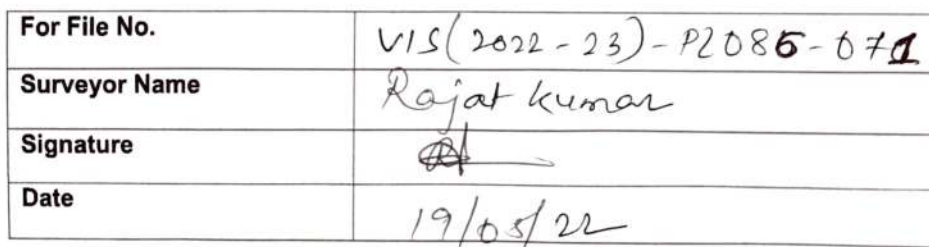 For File No. VIS(2022-23)-PL085-071
Surveyor Name Rajat Kumar
Signature
Date 19/05/22